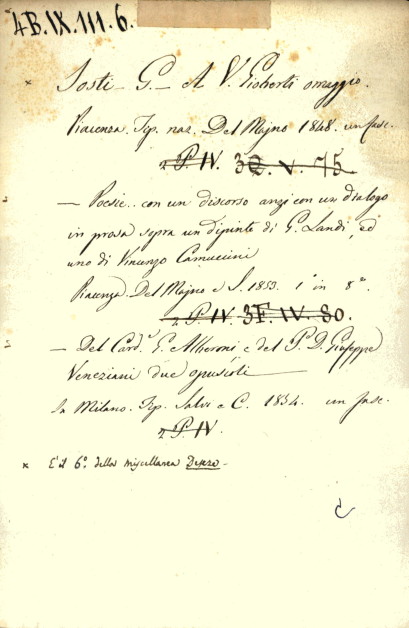 4B.IX.III.6.
× Tosti - G. - A V. Gioberti omaggio.
Piacenza. Tip. naz. Del Majno 1848. un fasc.
2. P. IV. 3Q. V. 75
— Poesie.. con un discorso anzi con un dialogo
in prosa sopra un dipinto di G. Landi, ed
uno di Vincenzo Camuccini
Piacenza. Del Majno e S. 1853. 1° in 8°.
2. P. IV 3F. IV. 80.
— Del Card.e G. Alberoni e del P. D. Giuseppe
Veneziani due opuscoli
In Milano. Tip. Salvi e C. 1854. un fasc.
2. P. IV
× È il 6° della miscellanea